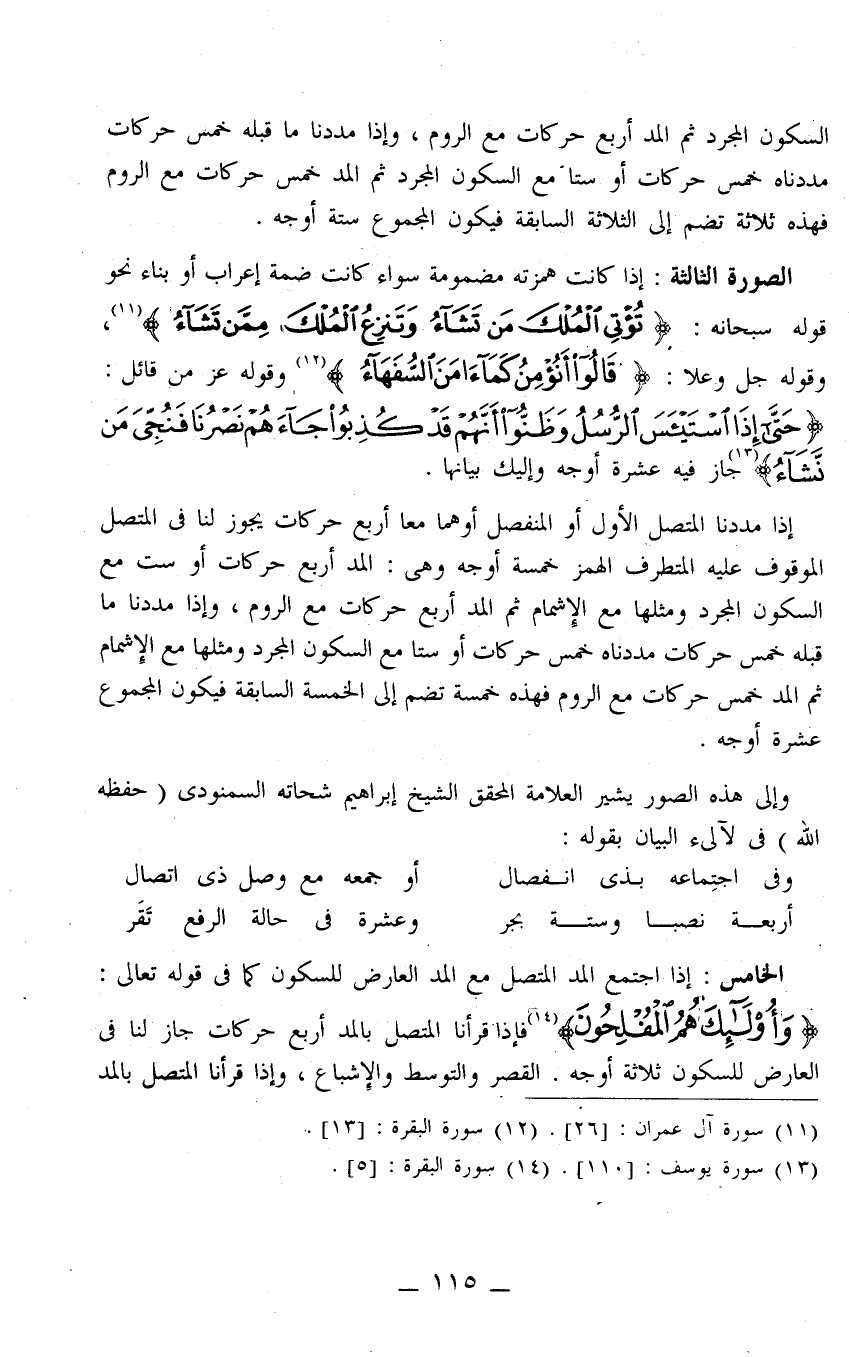 السكون المجرد ثم المد أربع حركات مع الروم ، وإذا مددنا ما قبله خمس حركات
مددناه خمس حركات أو ستا مع السكون المجرد ثم المد خمس حركات مع الروم
فهذه ثلاثة تضم إلى الثلاثة السابقة فيكون المجموع ستة أوجه .
الصورة الثالثة : إذا كانت همزته مضمومة سواء كانت ضمة إعراب أو بناء نحو
قوله سبحانه : ﴿ تُؤْتِي ٱلْمُلْكَ مَن تَشَآءُ وَتَنزِعُ ٱلْمُلْكَ مِمَّن تَشَآءُ ﴾(١١)،
وقوله جل وعلا : ﴿ قَالُوٓا۟ أَنُؤْمِنُ كَمَآ ءَامَنَ ٱلسُّفَهَآءُ ﴾(١٢) وقوله عز من قائل :
﴿ حَتَّىٰٓ إِذَا ٱسْتَيْـَٔسَ ٱلرُّسُلُ وَظَنُّوٓا۟ أَنَّهُمْ قَدْ كُذِبُوا۟ جَآءَهُمْ نَصْرُنَا فَنُجِّىَ مَن
نَّشَآءُ ﴾(١٣) جاز فيه عشرة أوجه وإليك بيانها .
إذا مددنا المتصل الأول أو المنفصل أوهما معا أربع حركات يجوز لنا فى المتصل
الموقوف عليه المتطرف الهمز خمسة أوجه وهى : المد أربع حركات أو ست مع
السكون المجرد ومثلها مع الإشمام ثم المد أربع حركات مع الروم ، وإذا مددنا ما
قبله خمس حركات مددناه خمس حركات أو ستا مع السكون المجرد ومثلها مع الإشمام
ثم المد خمس حركات مع الروم فهذه خمسة تضم إلى الخمسة السابقة فيكون المجموع
عشرة أوجه .
وإلى هذه الصور يشير العلامة المحقق الشيخ إبراهيم شحاته السمنودى ( حفظه
الله ) فى لآلىء البيان بقوله :
وفى اجتِماعه بـذى انـــفصال أو جمعه مع وصل ذى اتصال
أربعـــة نصبـــا وستــــة بجر وعشرة فى حالة الرفع تَقَر
الخامس : إذا اجتمع المد المتصل مع المد العارض للسكون كما فى قوله تعالى :
﴿ وَأُو۟لَـٰٓئِكَ هُمُ ٱلْمُفْلِحُونَ ﴾(١٤) فإذا قرأنا المتصل بالمد أربع حركات جاز لنا فى
العارض للسكون ثلاثة أوجه . القصر والتوسط والإشباع ، وإذا قرأنا المتصل بالمد
(١١) سورة آل عمران : [٢٦] . (١٢) سورة البقرة : [١٣] .
(١٣) سورة يوسف : [١١٠] . (١٤) سورة البقرة : [٥] .
— ١١٥ —